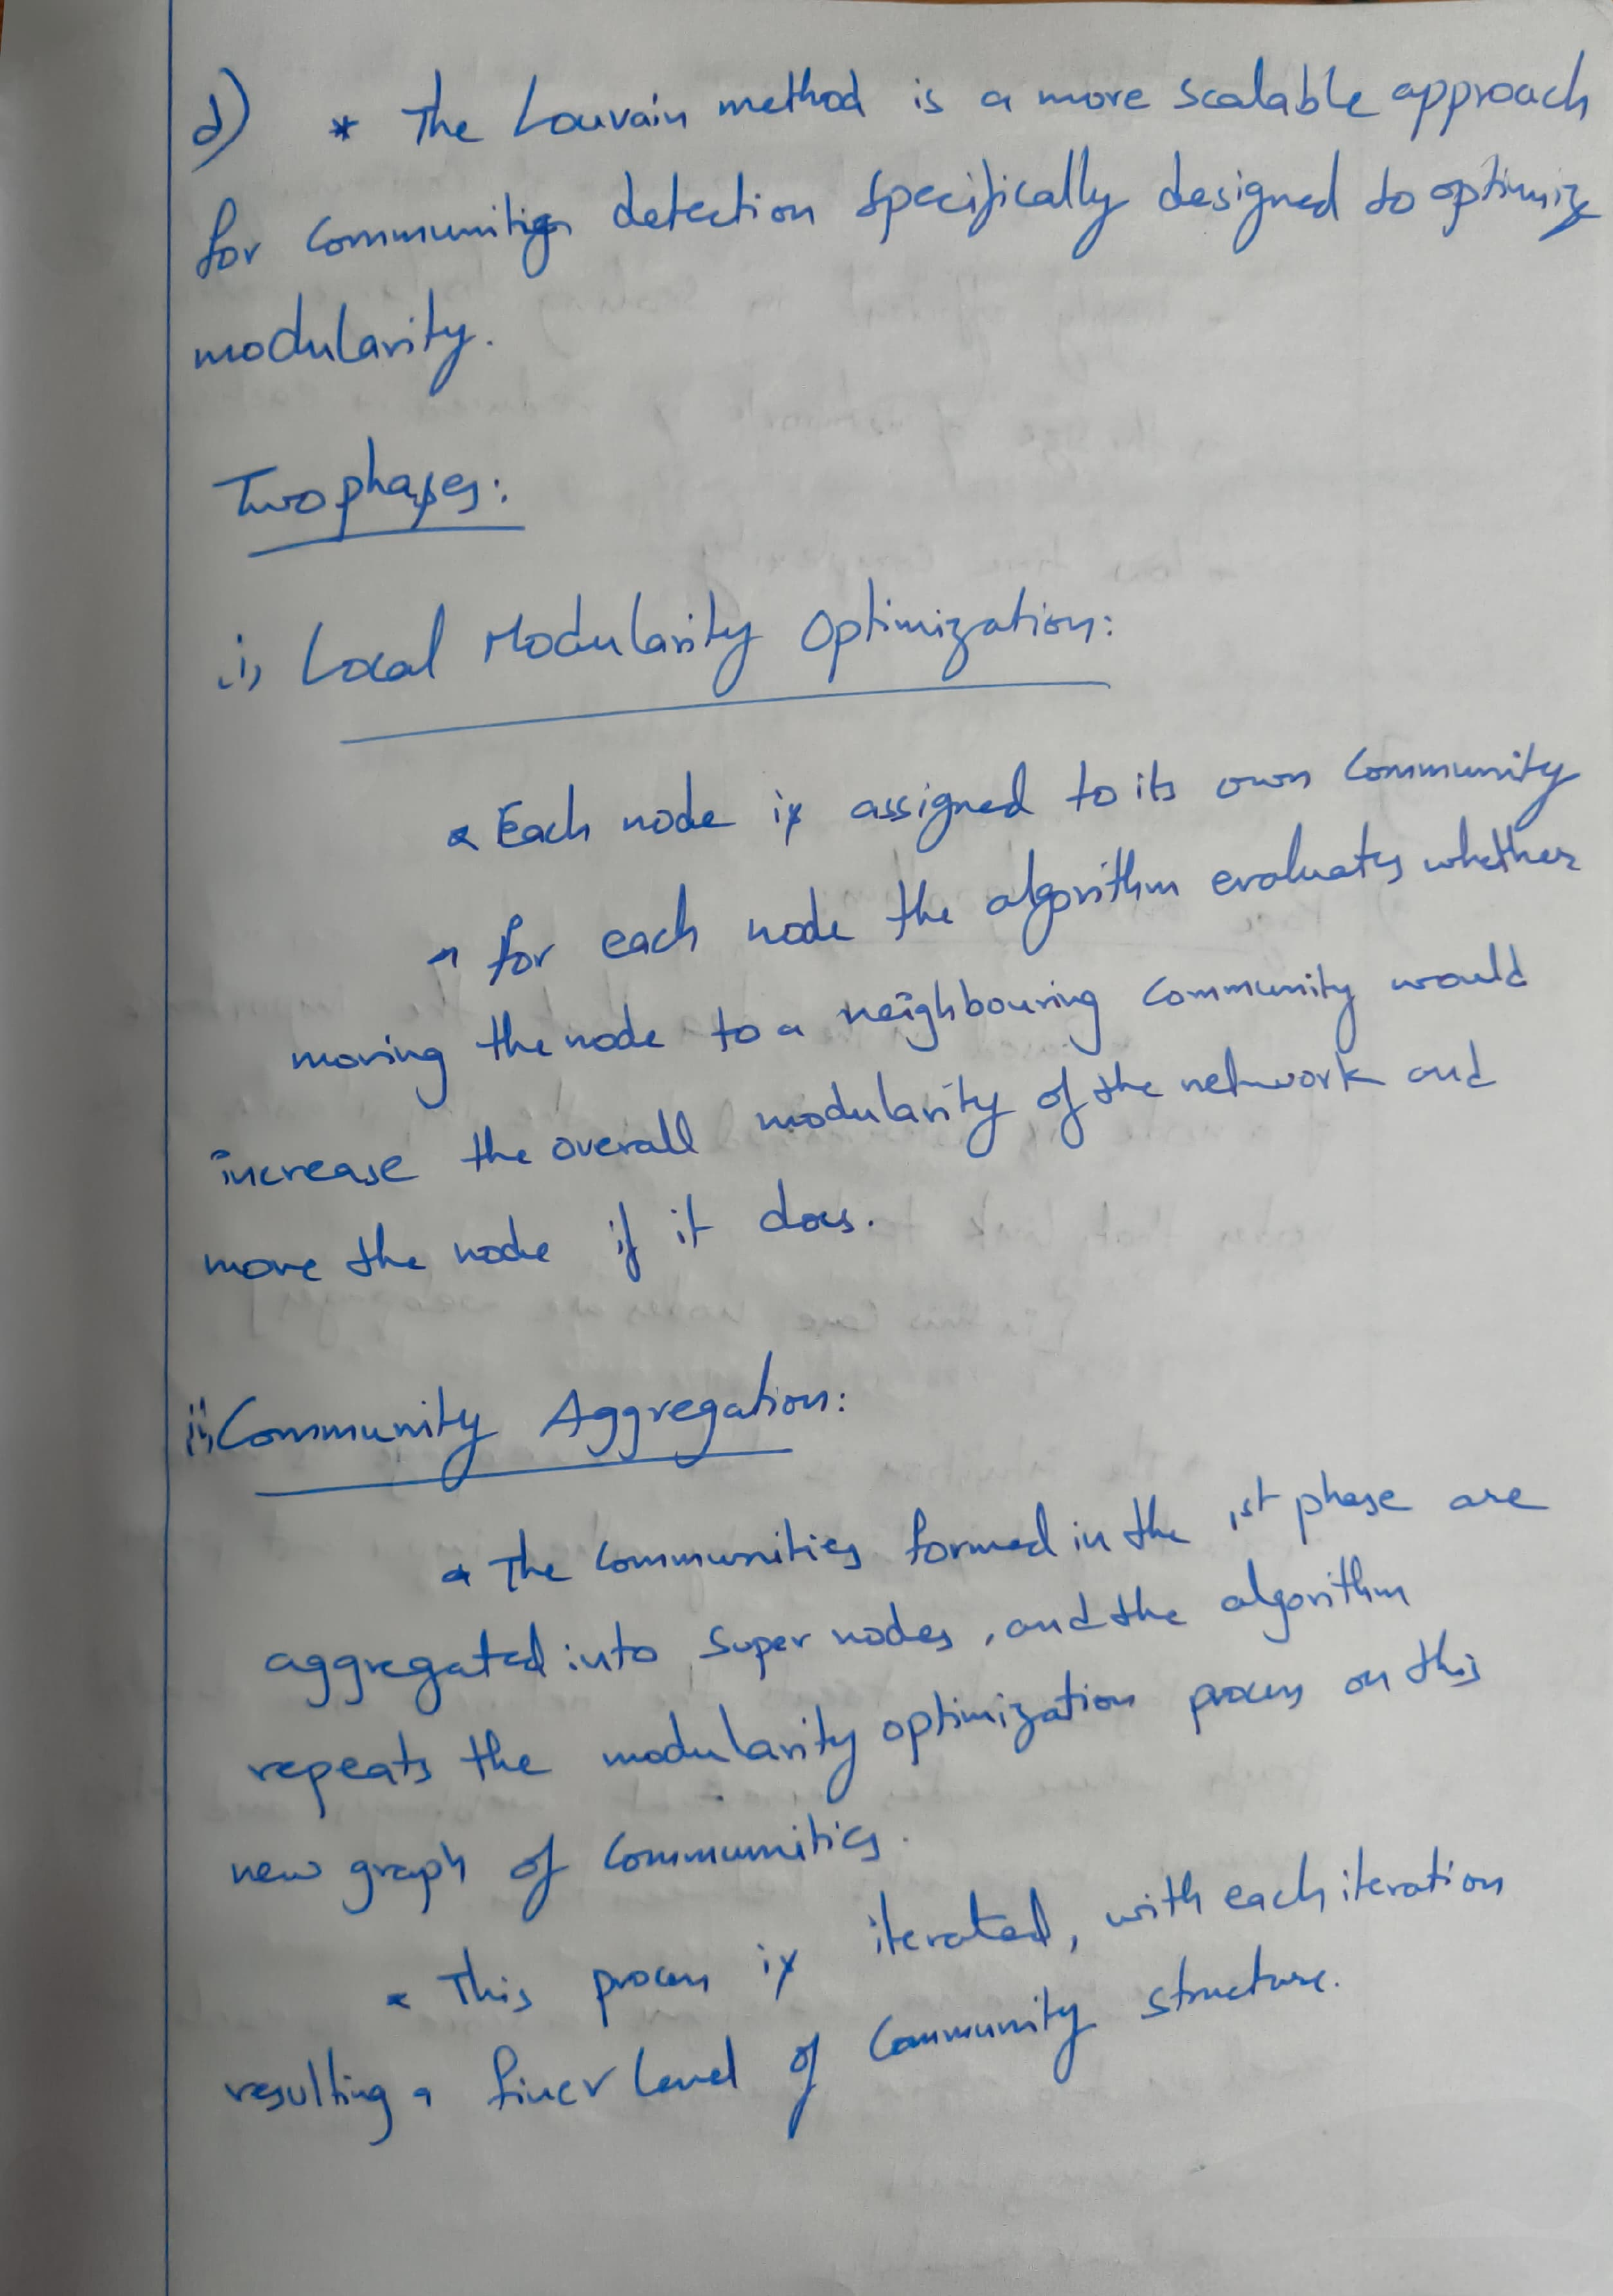 d) * The Louvain method is a more scalable approach
for communities detection specifically designed to optimiz
modularity.
Two phases:
i, Local Modularity Optimization:
* Each node is assigned to its own Community
* for each node the algorithm evaluates whether
moving the node to a neighbouring Community would
increase the overall modularity of the network and
move the node if it does.
ii, Community Aggregation:
* The Communities formed in the 1st phase are
aggregated into Super nodes, and the algorithm
repeats the modularity optimization process on this
new graph of Communities.
* This process is iterated, with each iteration
resulting a finer level of Community structure.